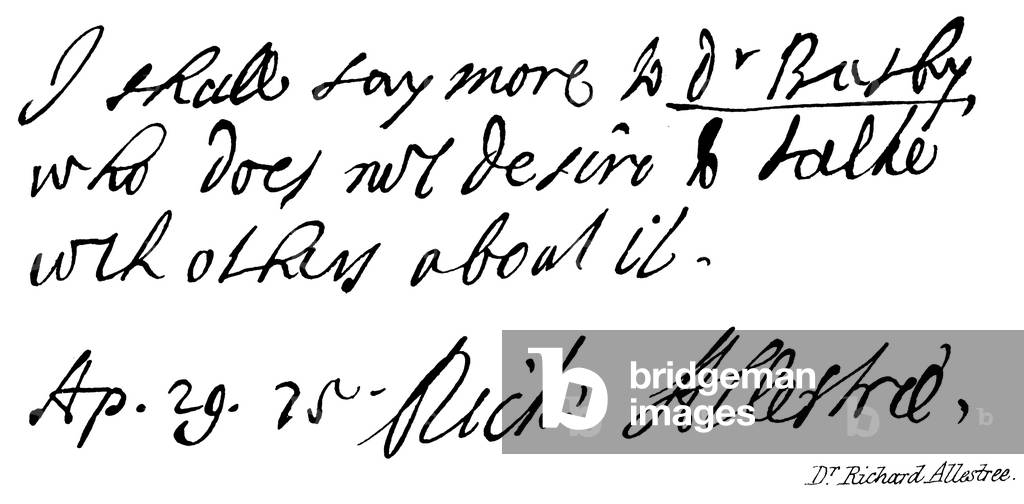 I shall say more to Dr Busby,
who does not desire to talke
wth others about it.
Ap. 29. 75 - Rich: Allestree,
b bridgeman images
b
b
Dr Richard Allestree.